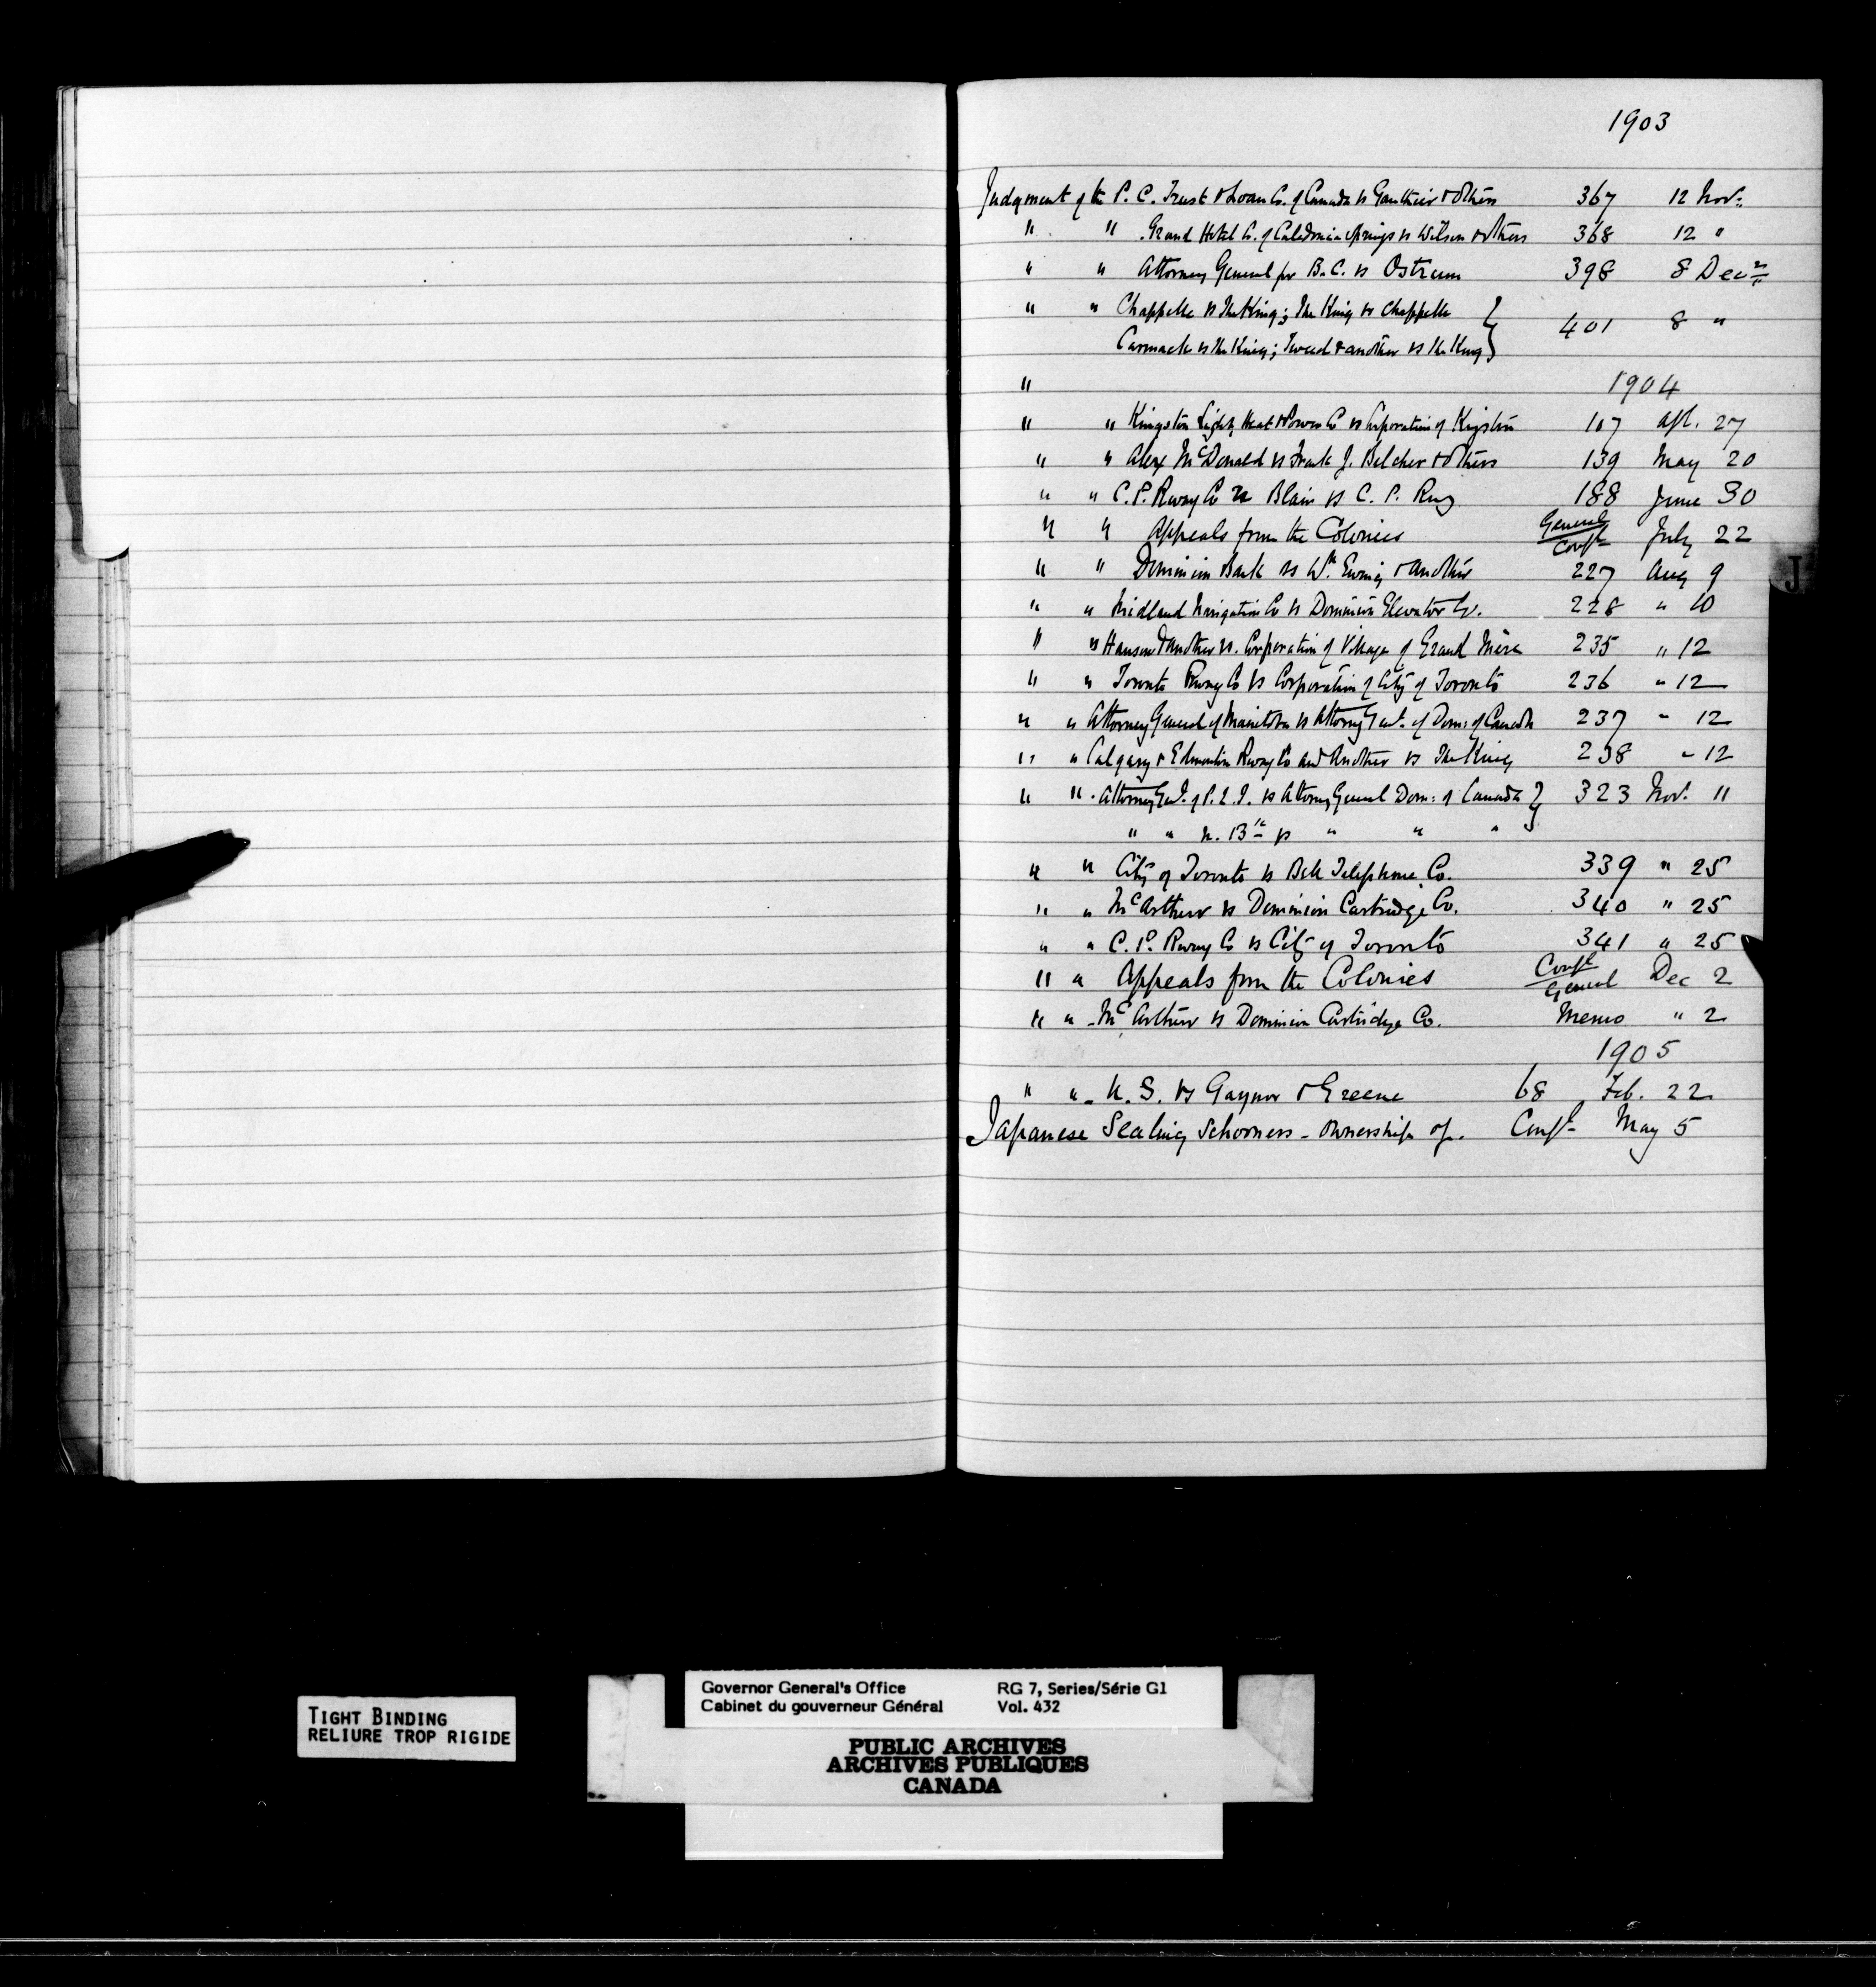 1903
Judgment of the P. C. Trust & Loan Co. of Canada vs Gauthier & Others 367 12 Nov:
" " Grand Hotel Co. of Caledonia Springs vs Wilson & others 368 12 "
" " Attorney General for B.C. vs Ostrum 398 8 Decr
" " Chappelle vs The King; The King vs Chappelle } 401 8 "
Carmack vs The King; Tweed & another vs The King }
" 1904
" " Kingston Light, Heat & Power Co vs Corporation of Kingston 107 Apl. 27
" " Alex McDonald vs Frank J. Belcher & Others 139 May 20
" " C. P. Rway Co Blain vs C. P. Rwy 188 June 30
" " Appeals from the Colonies General Confl July 22
" " Dominion Bank vs Wm Ewing & another 227 Aug 9
" " Midland Navigation Co vs Dominion Elevator Co. 228 " 10
" " Hanson & another vs. Corporation of Village of Grand Mère 235 " 12
" " Toronto Rway Co vs Corporation of City of Toronto 236 " 12
" " Attorney General of Manitoba vs Attorney Genl. of Dom: of Canada 237 " 12
" " Calgary & Edmonton Rway Co and Another vs The King 238 " 12
" " Attorney Genl. of P.E.I. vs Attorney General Dom: of Canada } 323 Nov. 11
" " N. Bk vs " " "
" " City of Toronto vs Bell Telephone Co. 339 " 25
" " McArthur vs Dominion Cartridge Co. 340 " 25
" " C. P. Rway Co vs City of Toronto 341 " 25
" " Appeals from the Colonies Confl General Dec 2
" " - McArthur vs Dominion Cartridge Co. Memo " 2
1905
" " - U. S. vs Gaynor & Greene 68 Feb. 22
Japanese Sealing Schooners - ownership of. Confl May 5
J
TIGHT BINDING
RELIURE TROP RIGIDE
Governor General's Office RG 7, Series/Série G1
Cabinet du gouverneur Général Vol. 432
PUBLIC ARCHIVES
ARCHIVES PUBLIQUES
CANADA